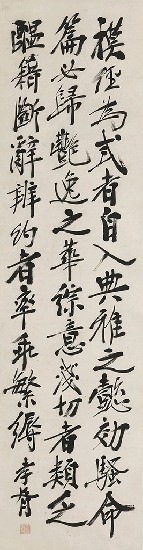 模經為式者自入典雅之懿効騷命
篇必歸豔逸之華綜意淺切者類乏
醞籍斷辭辨約者率乖繁縟 孝胥